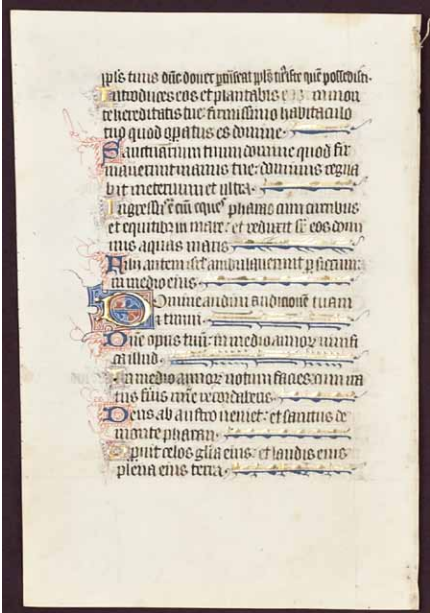 pls tuus dñe donec ptñseat pls tuꝰ iste quē possedisti.
Introduces eos et plantabis eos in mon
te hereditatis tue: firmissimo habitaculo
tuo quod opatus es domine.
Sanctuarium tuum domine quod fir
maverunt manus tue: dominus regna
bit in eternum et ultra.
Ingressus ē eñ eques pharao cum curribus
et equitibꝫ in mare: et reduxit sr̄ eos domi
nus aquas maris
Filii autem isrl ambulaverunt p siccum:
in medio eius.
Domine audivi auditionē tuam
et timui.
Dñe opus tuū: in medio annoꝝ vivifi
ca illud.
In medio annoꝝ notum facies: cum ira
tus fũis mīe recordaberis.
Deus ab austro veniet: et sanctus de
monte pharan.
Opuit celos glia eius: et laudis eius
plena eius terra.